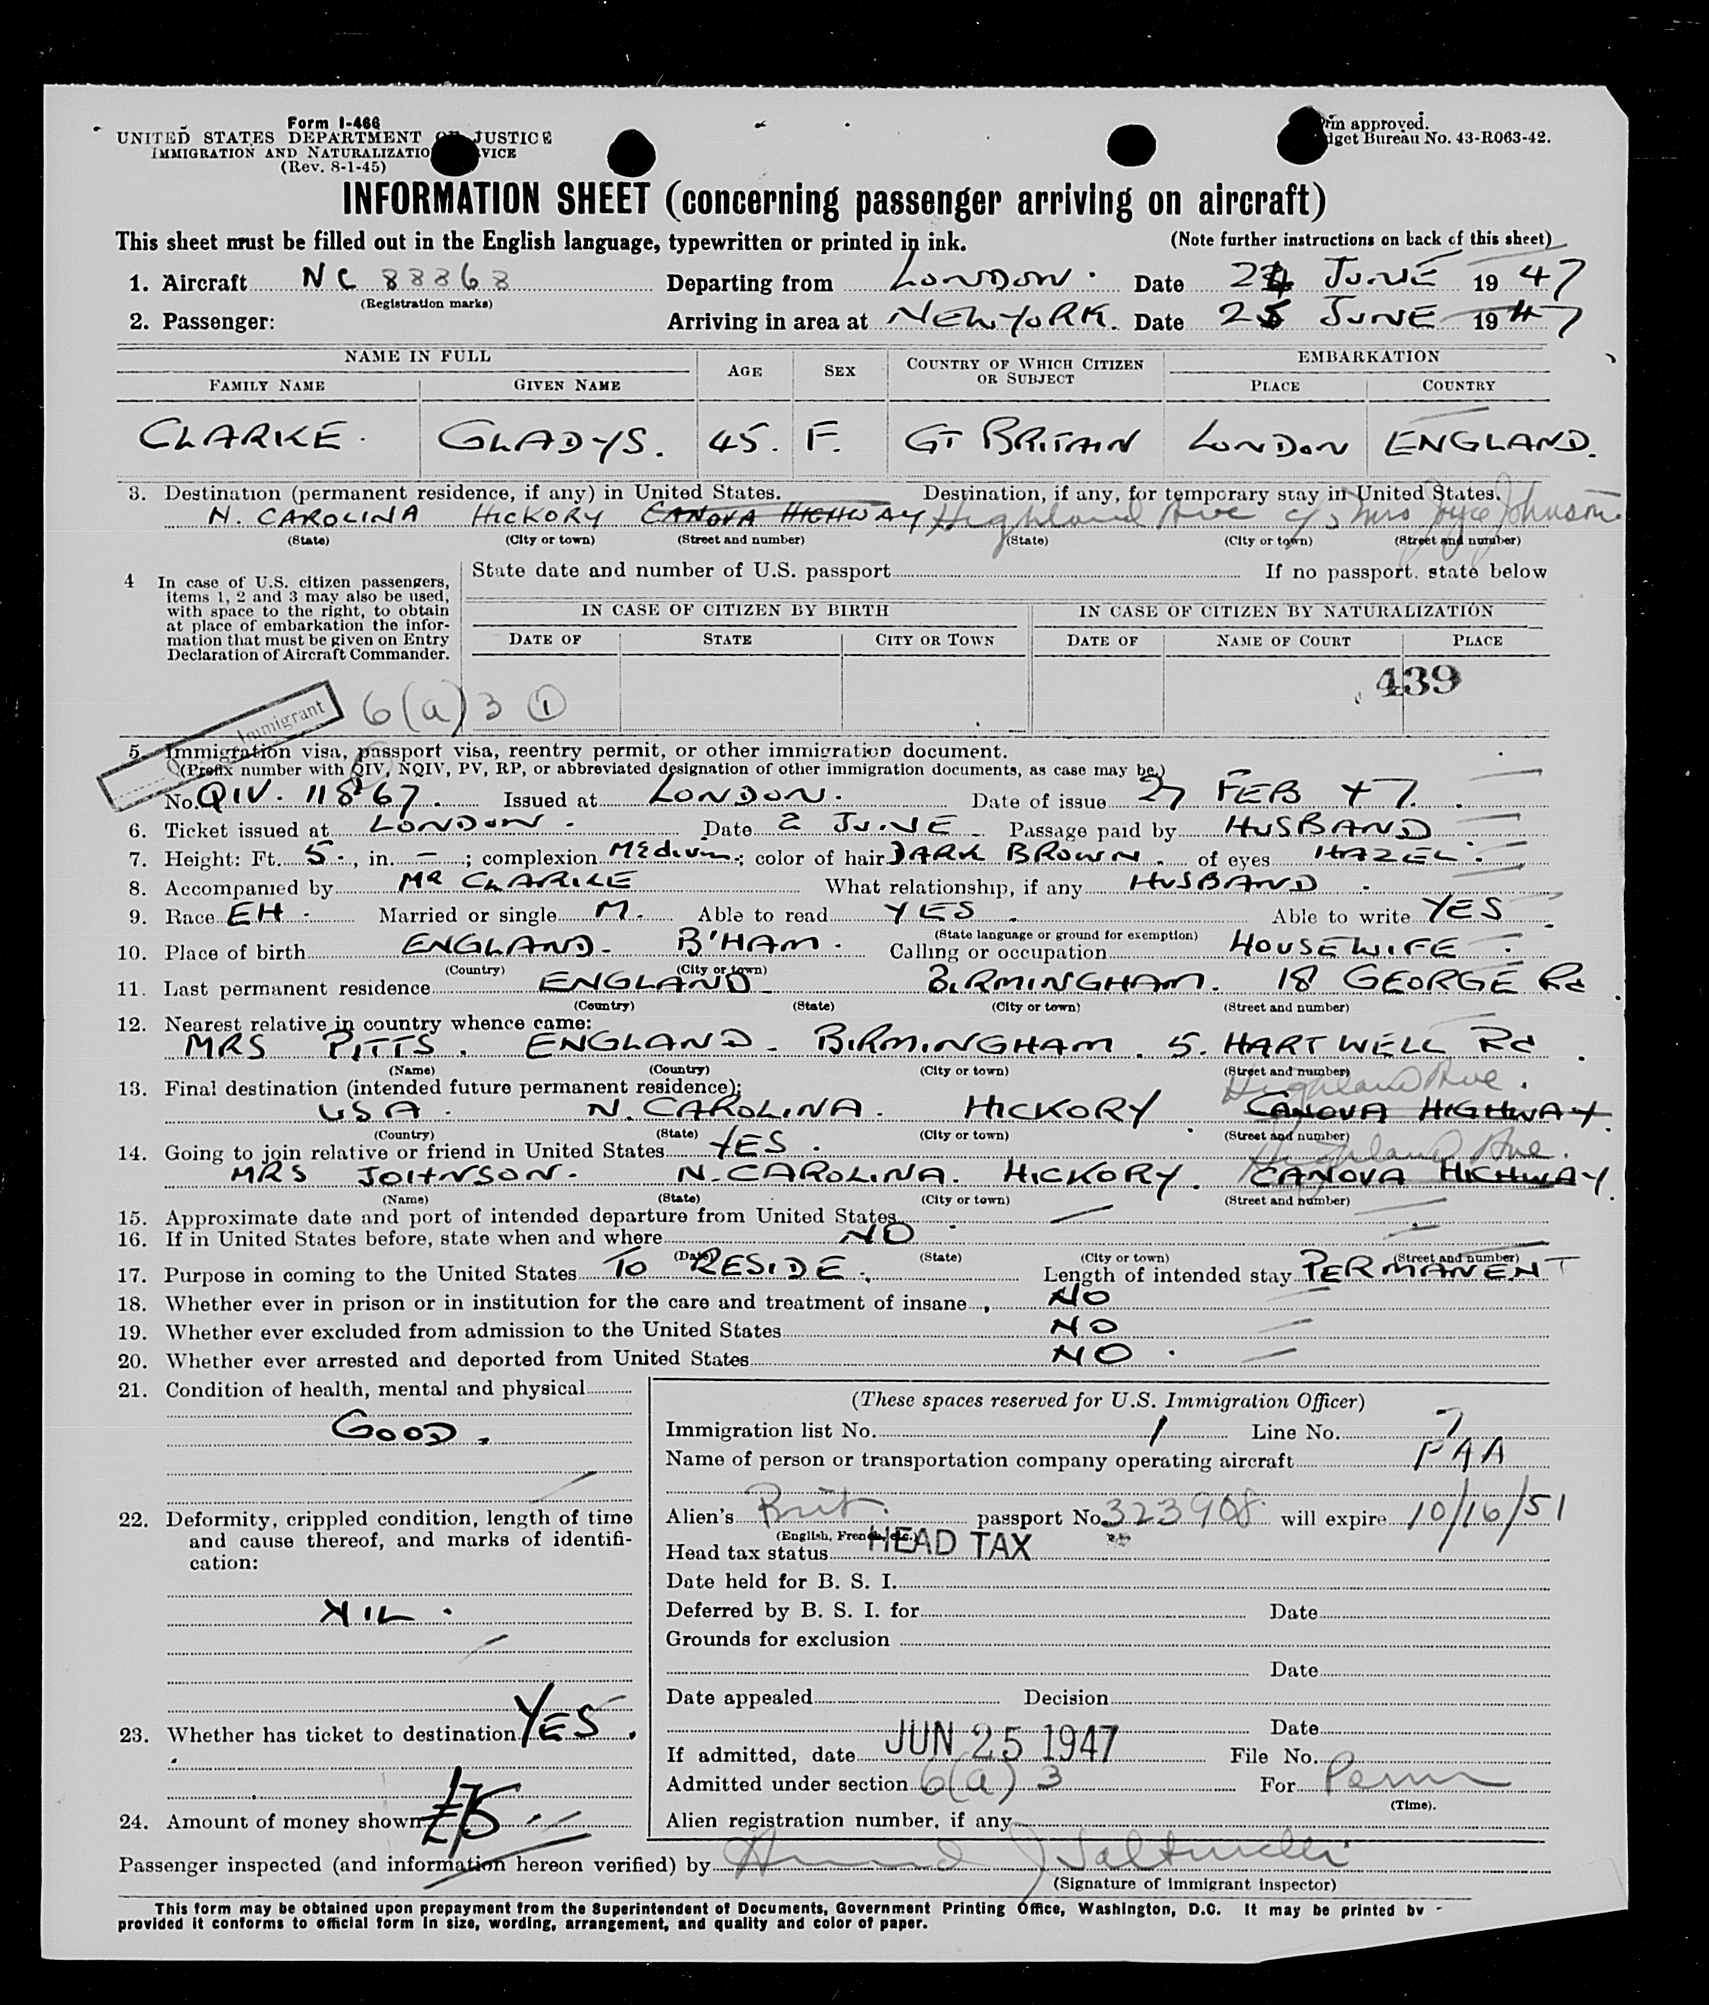 Form I-466
UNITED STATES DEPARTMENT OF JUSTICE
IMMIGRATION AND NATURALIZATIO VICE
(Rev. 8-1-45)
rm approved.
dget Bureau No. 43-R063-42.
INFORMATION SHEET (concerning passenger arriving on aircraft)
This sheet must be filled out in the English language, typewritten or printed in ink. (Note further instructions on back of this sheet)
1. Aircraft NC 88868 Departing from LONDON. Date 24 JUNE 1947
(Registration marks)
2. Passenger: Arriving in area at NEW YORK. Date 25 JUNE 1947
NAME IN FULL AGE SEX COUNTRY OF WHICH CITIZEN OR SUBJECT EMBARKATION
FAMILY NAME GIVEN NAME PLACE COUNTRY
CLARKE. GLADYS. 45. F. GT BRITAIN LONDON ENGLAND.
3. Destination (permanent residence, if any) in United States. Destination, if any, for temporary stay in United States.
N. CAROLINA HICKORY CANOVA HIGHWAY Highland Ave c/o Mrs Joyce Johnson
(State) (City or town) (Street and number) (State) (City or town) (Street and number)
4 In case of U.S. citizen passengers, items 1, 2 and 3 may also be used, with space to the right, to obtain at place of embarkation the information that must be given on Entry Declaration of Aircraft Commander.
State date and number of U.S. passport If no passport, state below
IN CASE OF CITIZEN BY BIRTH IN CASE OF CITIZEN BY NATURALIZATION
DATE OF STATE CITY OR TOWN DATE OF NAME OF COURT PLACE
439
Immigrant 6(a)3 1
5. Immigration visa, passport visa, reentry permit, or other immigration document.
(Prefix number with QIV, NQIV, PV, RP, or abbreviated designation of other immigration documents, as case may be.)
No. QIV. 11867. Issued at LONDON. Date of issue 27 FEB 47.
6. Ticket issued at LONDON. Date 2 JUNE Passage paid by HUSBAND
7. Height: Ft. 5., in. —; complexion MEdium; color of hair DARK BROWN. of eyes HAZEL.
8. Accompanied by MR CLARKE What relationship, if any HUSBAND.
9. Race EH. Married or single M. Able to read YES. Able to write YES
(State language or ground for exemption)
10. Place of birth ENGLAND. B'HAM. Calling or occupation HOUSEWIFE.
(Country) (City or town)
11. Last permanent residence ENGLAND BIRMINGHAM. 18 GEORGE Rd.
(Country) (State) (City or town) (Street and number)
12. Nearest relative in country whence came:
MRS PITTS. ENGLAND. BIRMINGHAM. 5. HARTWELL Rd.
(Name) (Country) (City or town) (Street and number)
13. Final destination (intended future permanent residence): Highland Ave.
USA. N. CAROLINA. HICKORY CANOVA HIGHWAY.
(Country) (State) (City or town) (Street and number)
14. Going to join relative or friend in United States YES. Highland Ave.
MRS JOHNSON. N. CAROLINA. HICKORY. CANOVA HIGHWAY.
(Name) (State) (City or town) (Street and number)
15. Approximate date and port of intended departure from United States —
16. If in United States before, state when and where NO
(Date) (State) (City or town) (Street and number)
17. Purpose in coming to the United States TO RESIDE. Length of intended stay PERMANENT
18. Whether ever in prison or in institution for the care and treatment of insane NO
19. Whether ever excluded from admission to the United States NO
20. Whether ever arrested and deported from United States NO.
21. Condition of health, mental and physical
GOOD.
22. Deformity, crippled condition, length of time and cause thereof, and marks of identification:
NIL.
23. Whether has ticket to destination YES.
24. Amount of money shown £75
(These spaces reserved for U.S. Immigration Officer)
Immigration list No. 1 Line No. 7
Name of person or transportation company operating aircraft PAA
Alien's Brit. passport No. 323908 will expire 10/16/51
(English, French, etc.)
Head tax status HEAD TAX
Date held for B. S. I.
Deferred by B. S. I. for Date
Grounds for exclusion
Date
Date appealed Decision
Date
If admitted, date JUN 25 1947 File No.
Admitted under section 6(a)3 For Perm
(Time).
Alien registration number, if any
Passenger inspected (and information hereon verified) by
(Signature of Immigrant Inspector)
This form may be obtained upon prepayment from the Superintendent of Documents, Government Printing Office, Washington, D.C. It may be printed by
provided it conforms to official form in size, wording, arrangement, and quality and color of paper.